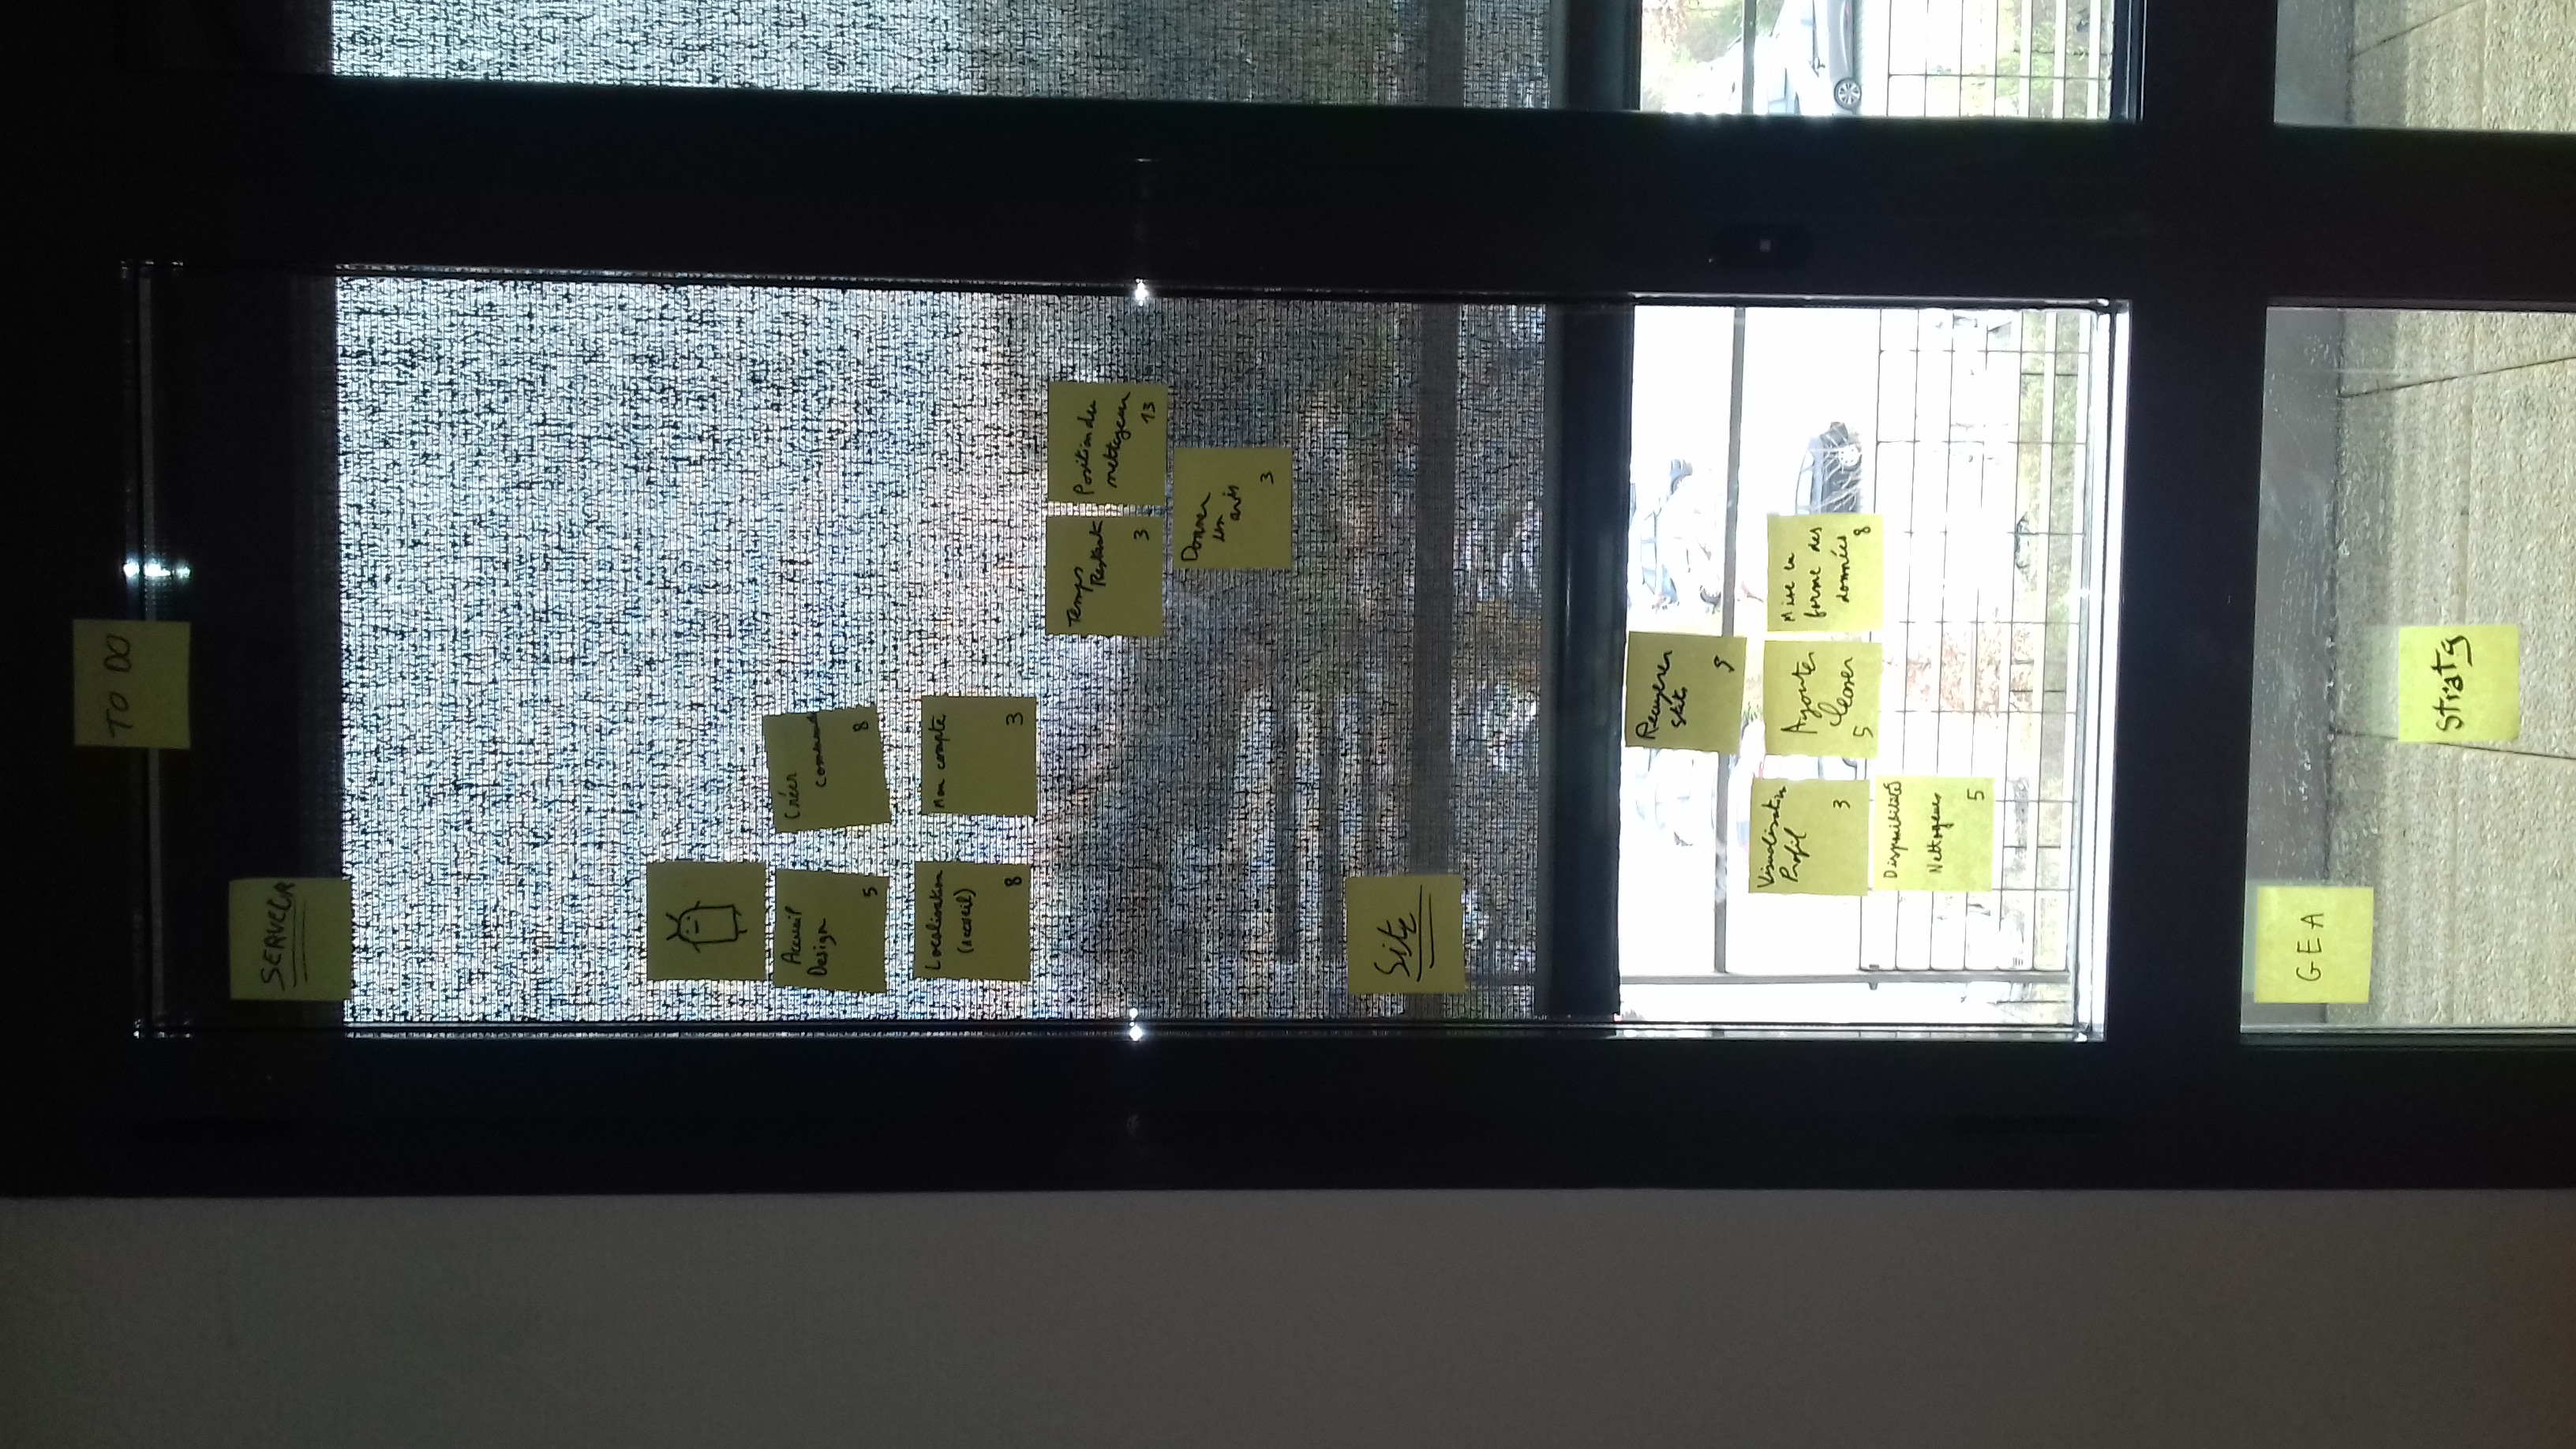 TO DO
SERVEUR
Accueil
Design
5
Créer
8
Localisation
(accueil)
8
Mon compte
3
Temps
Restant
3
Position du
nettoyeur
13
Donner
un
avis
3
Site
Recuperer
stats
Visualisation
Profil
3
Ajouter
5
Mise en
forme des
données
8
Disponibilités
Nettoyeurs
5
GEA